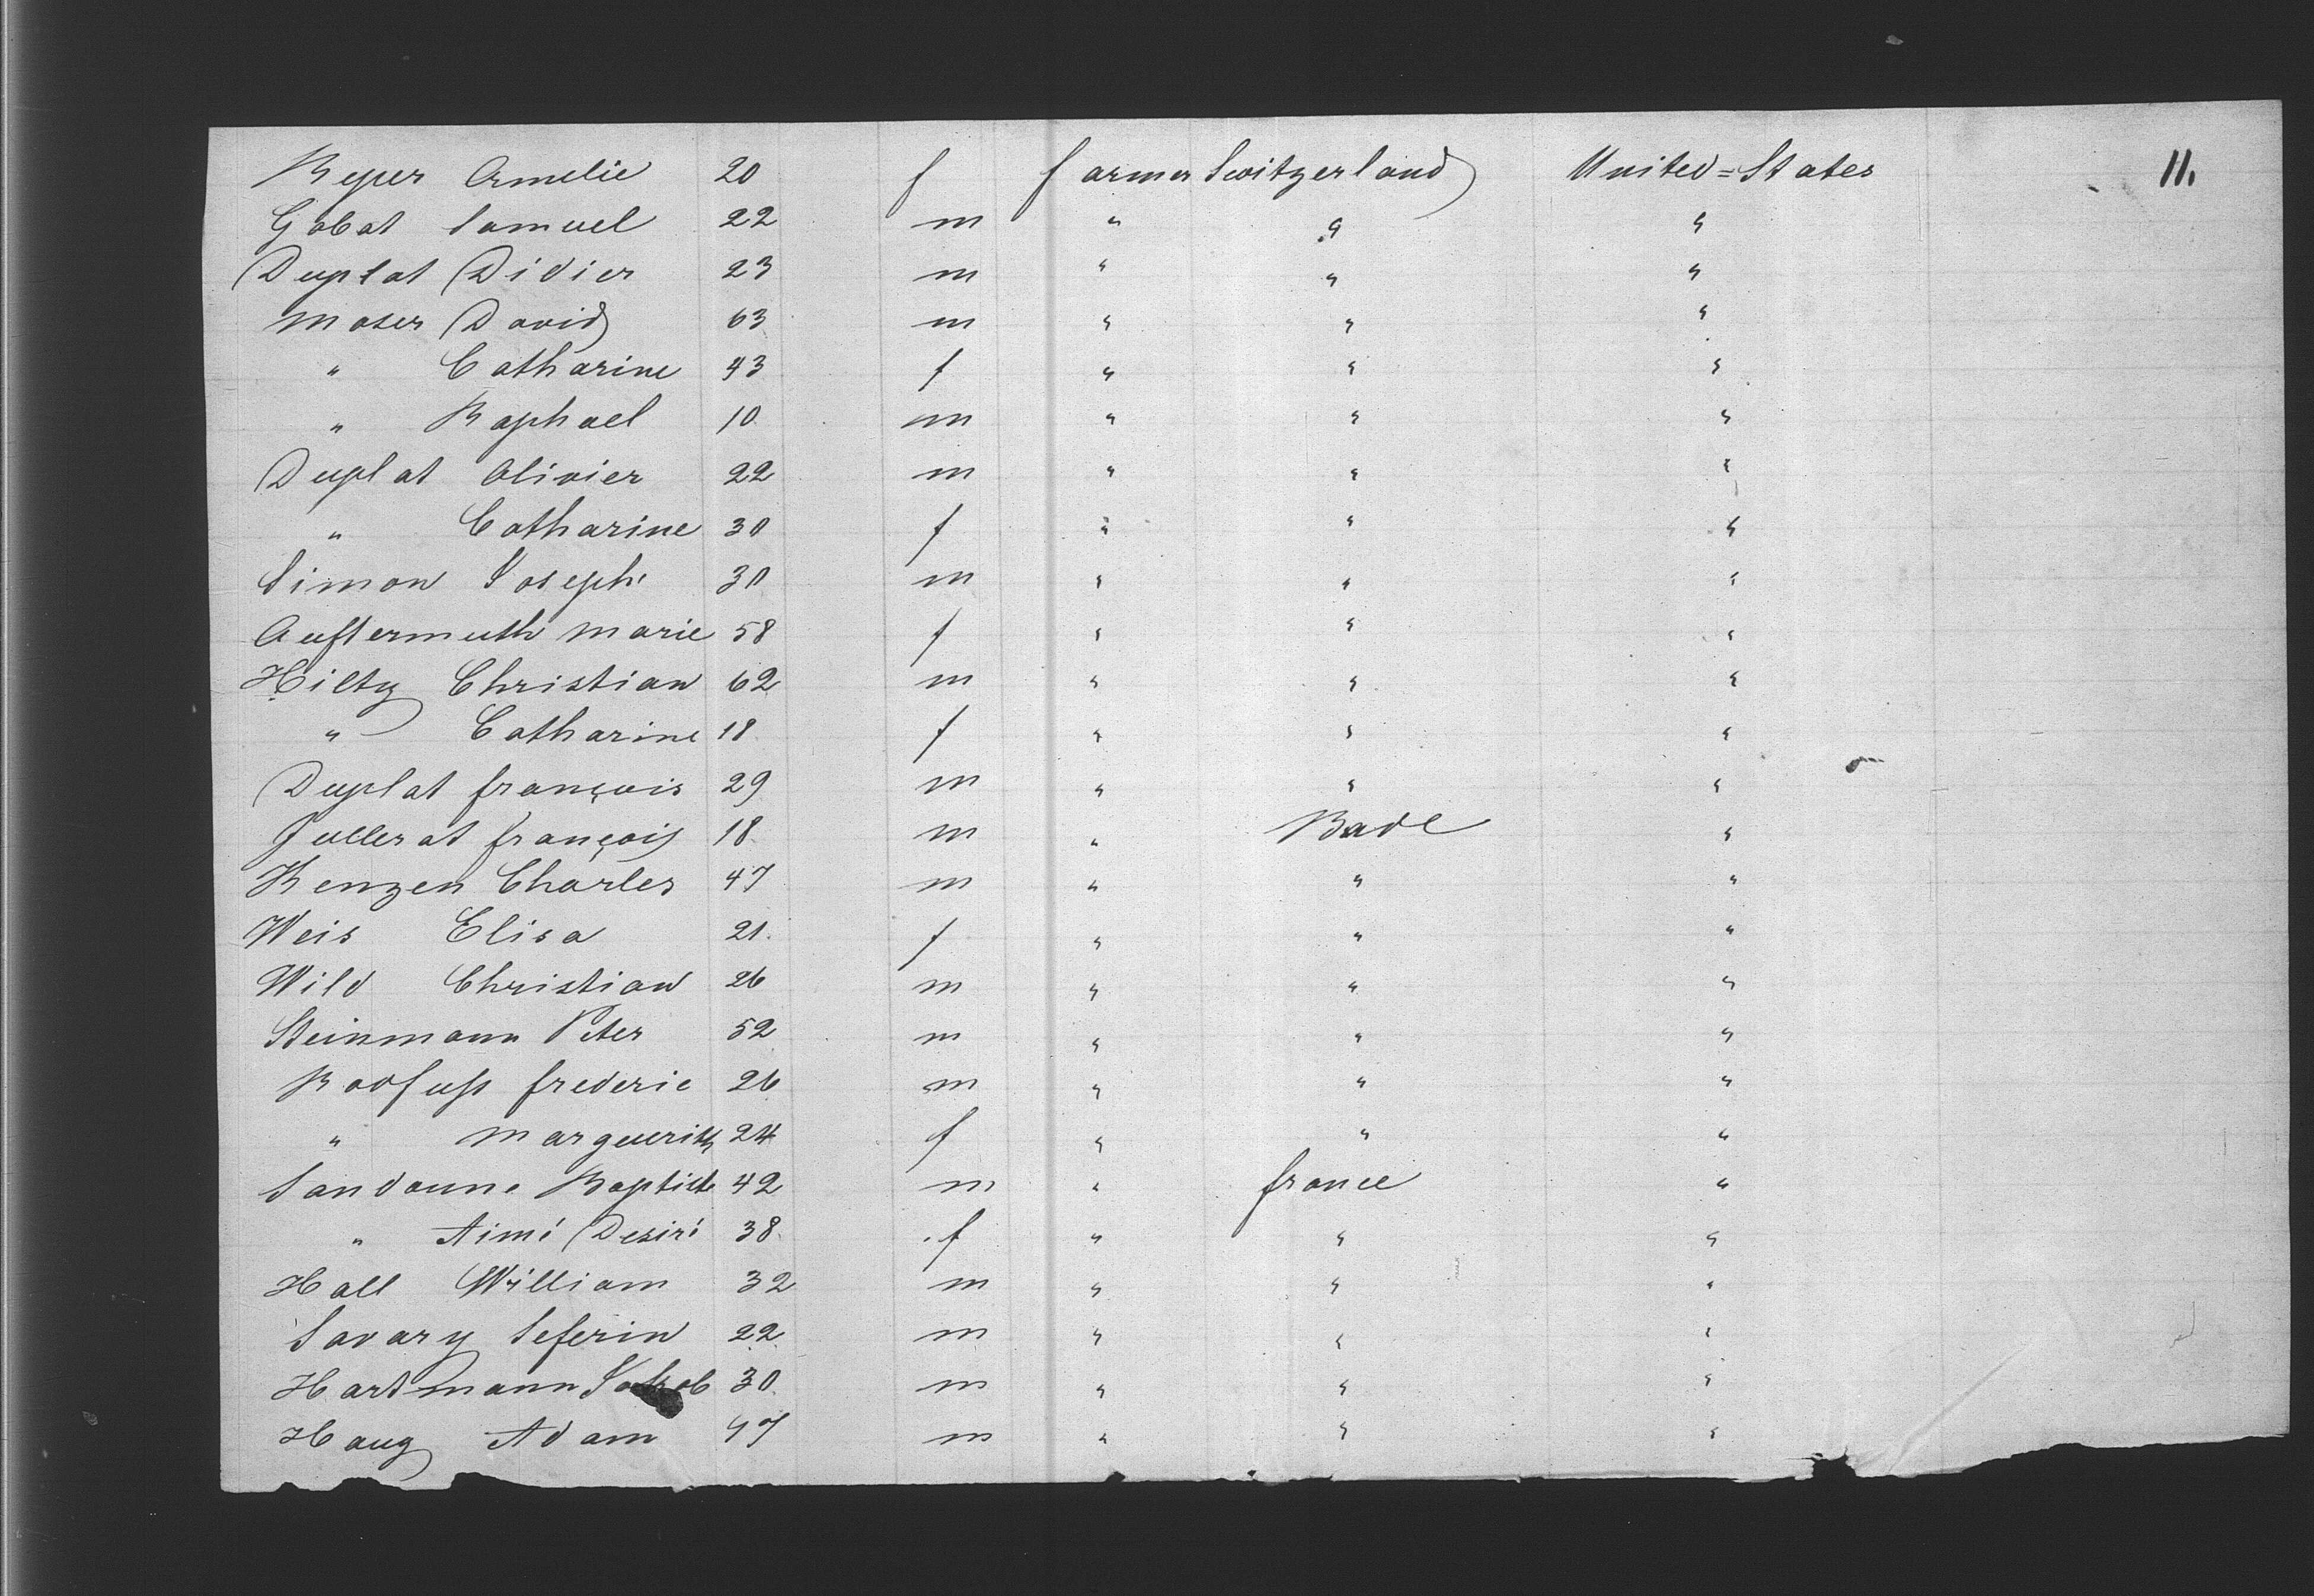 Reyer Amelie 20 f farmer Switzerland United=States 11.
Gobat Samuel 22 m " " "
Duplat Didier 23 m " " "
Moser David 63 m " " "
" Catharine 43 f " " "
" Raphael 10 m " " "
Duplat Olivier 22 m " " "
" Catharine 30 f " " "
Simon Joseph 30 m " " "
Auftermuth Marie 58 f " " "
Hilty Christian 62 m " " "
" Catharine 18 f " " "
Duplat françois 29 m " " "
Jullerat françois 18 m " Bade "
Kenzen Charles 47 m " " "
Weis Elisa 21 f " " "
Wild Christian 26 m " " "
Steinmann Peter 52 m " " "
Rodfuss frederic 26 m " " "
" Marguerith 24 f " " "
Sandoune Baptiste 42 m " france "
" Aimé Desiré 38 f " " "
Hall William 32 m " " "
Savary Seferin 22 m " " "
Hartmann Jakob 30 m " " "
Haug Adam 47 m " " "